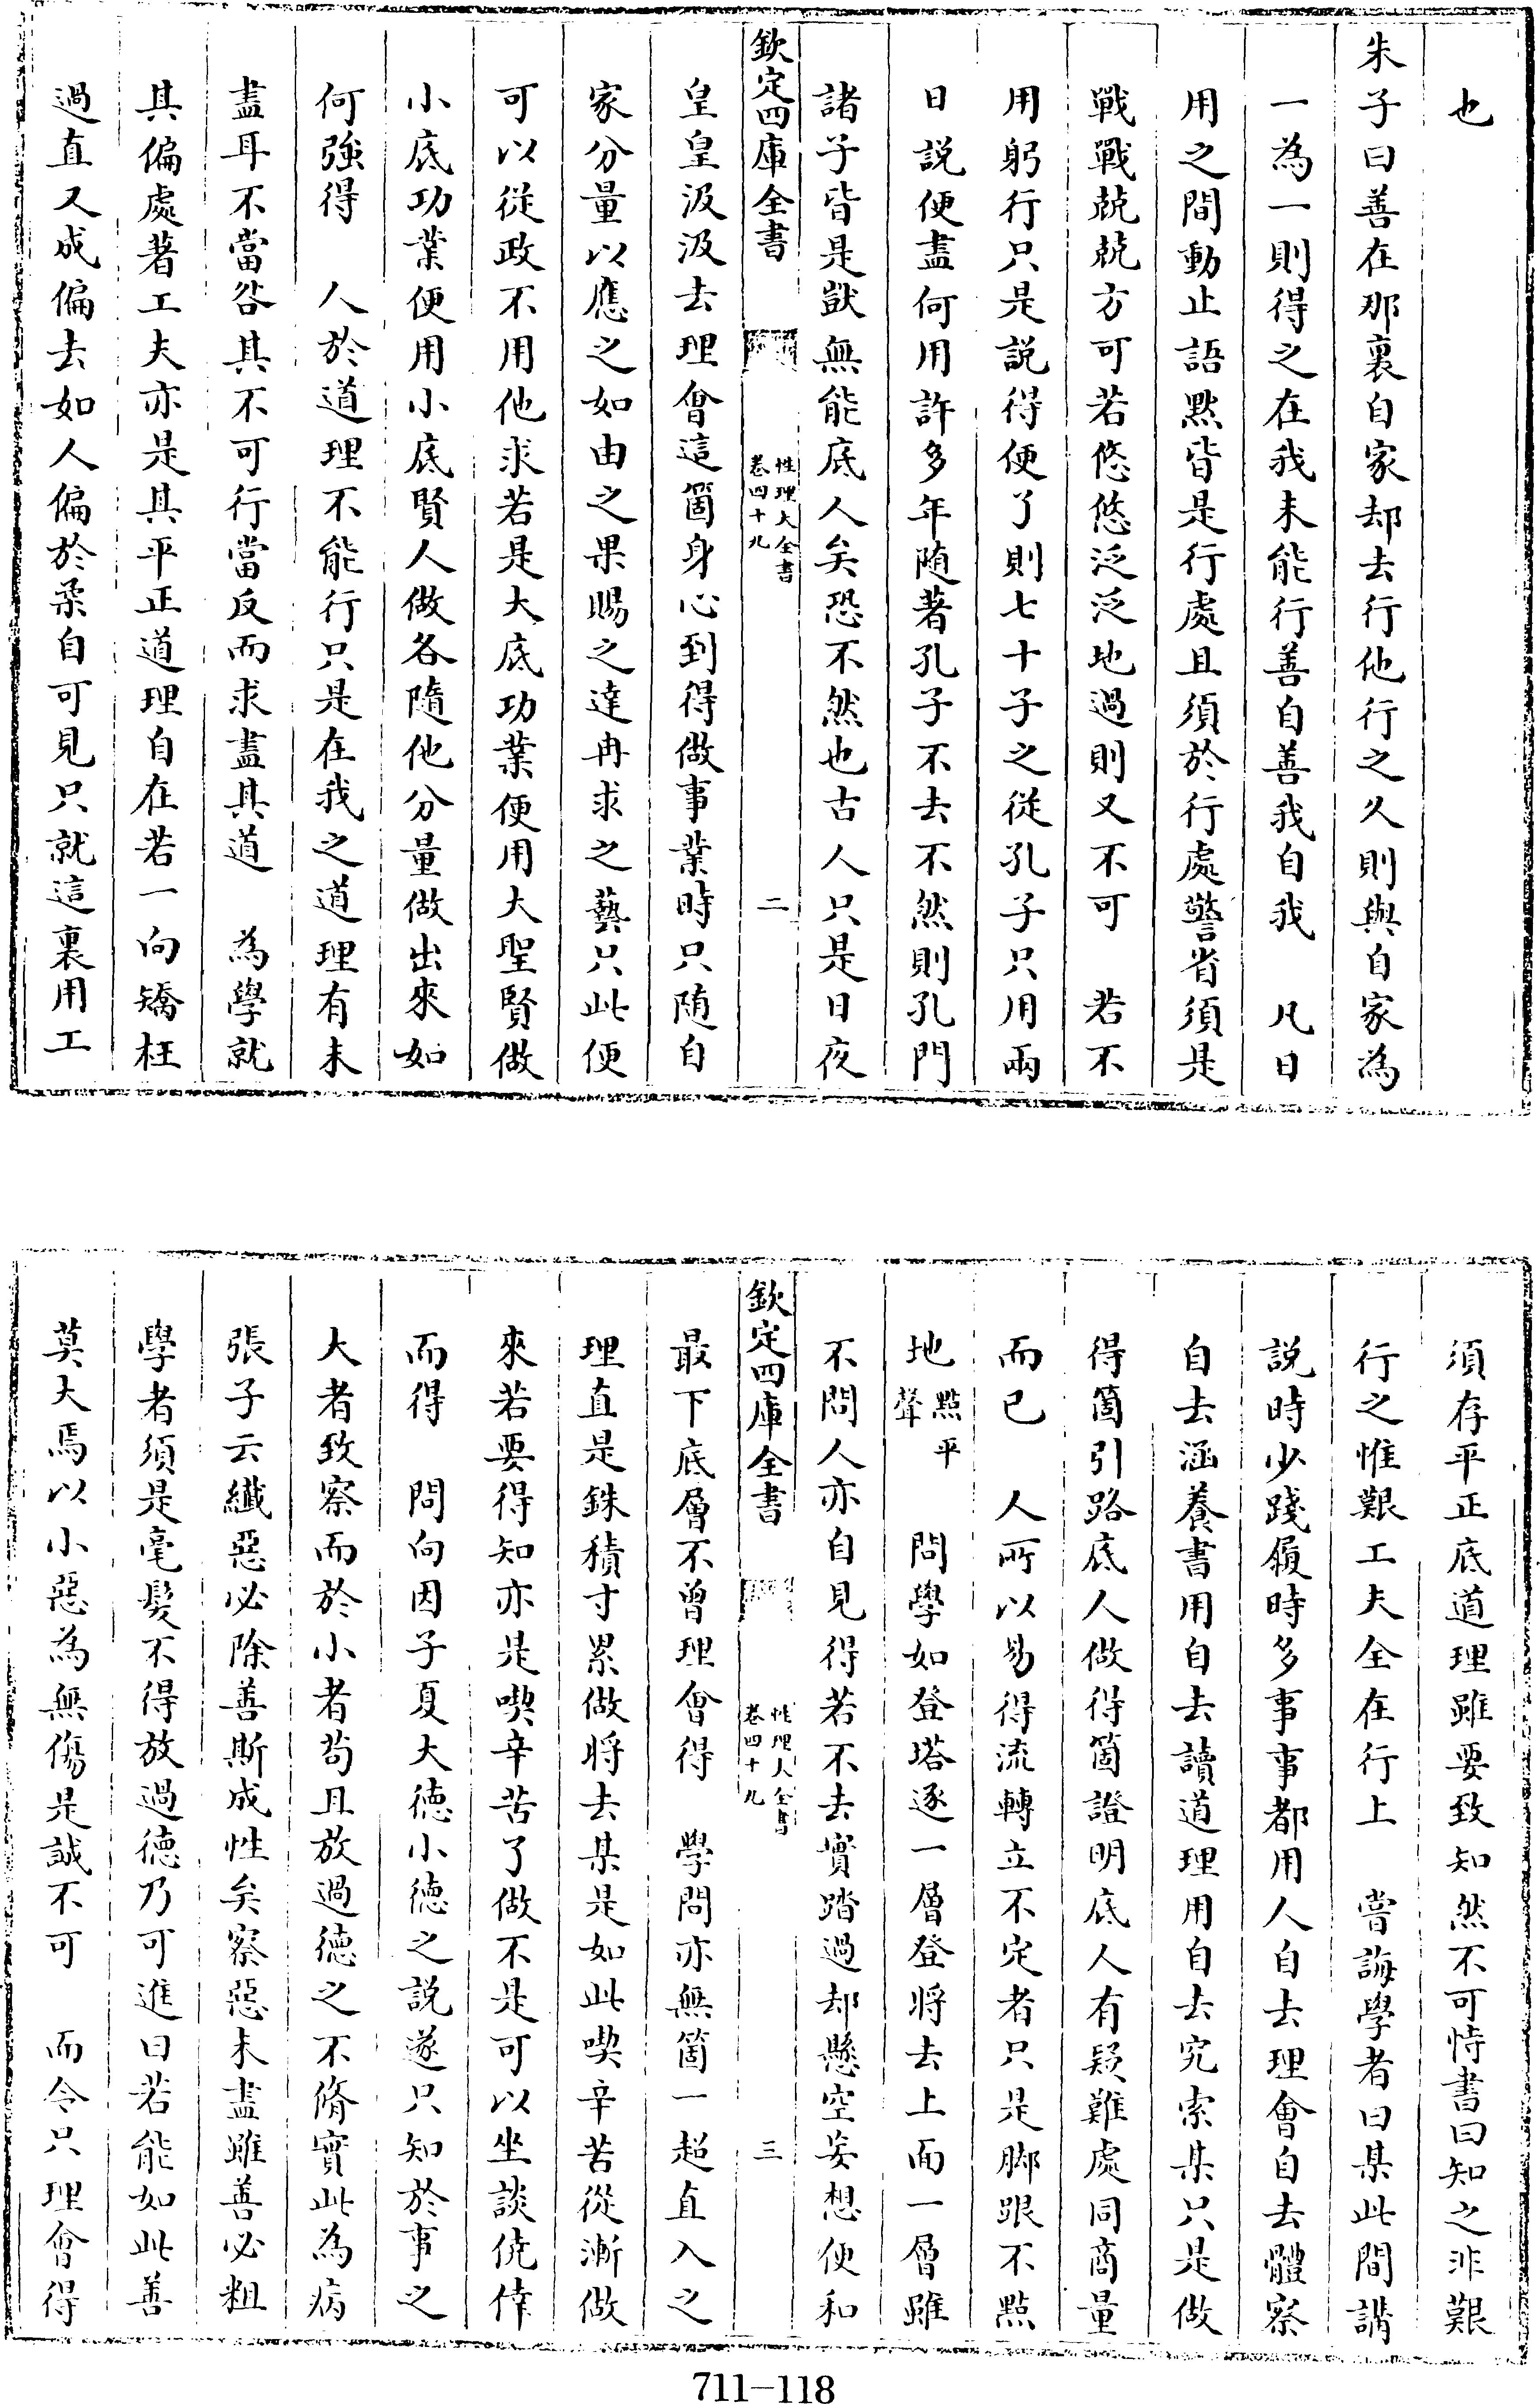 也
朱子曰善在那裏自家却去行他行之久則與自家為
一為一則得之在我未能行善自善我自我　凡日
用之間動止語黙皆是行處且須於行處警省須是
戰戰兢兢方可若悠悠泛泛地過則又不可　若不
用躬行只是説得便了則七十子之從孔子只用兩
日説便盡何用許多年随著孔子不去不然則孔門
諸子皆是獃無能底人矣恐不然也古人只是日夜
欽定四庫全書
性理大全書
卷四十九
二
皇皇汲汲去理會這箇身心到得做事業時只随自
家分量以應之如由之果賜之達冉求之藝只此便
可以從政不用他求若是大底功業便用大聖賢做
小底功業便用小底賢人做各隨他分量做出來如
何強得　人於道理不能行只是在我之道理有未
盡耳不當咎其不可行當反而求盡其道　為學就
其偏處著工夫亦是其平正道理自在若一向矯枉
過直又成偏去如人偏於柔自可見只就這裏用工
須存平正底道理雖要致知然不可恃書曰知之非艱
行之惟艱工夫全在行上　嘗誨學者曰某此間講
説時少踐履時多事事都用人自去理會自去體察
自去涵養書用自去讀道理用自去究索某只是做
得箇引路底人做得箇證明底人有疑難處同商量
而已　人所以易得流轉立不定者只是脚跟不㸃
地㸃平聲　問學如登塔逐一層登將去上面一層雖
不問人亦自見得若不去實踏過却懸空妄想便和
欽定四庫全書
性理大全書
卷四十九
三
最下底層不曾理會得　學問亦無箇一超直入之
理直是銖積寸累做將去某是如此喫辛苦從漸做
來若要得知亦是喫辛苦了做不是可以坐談僥倖
而得　問向因子夏大徳小徳之説遂只知於事之
大者致察而於小者苟且放過徳之不脩實此為病
張子云纎惡必除善斯成性矣察惡未盡雖善必粗
學者須是毫髮不得放過徳乃可進曰若能如此善
莫大焉以小惡為無傷是誠不可　而今只理會得
711-118